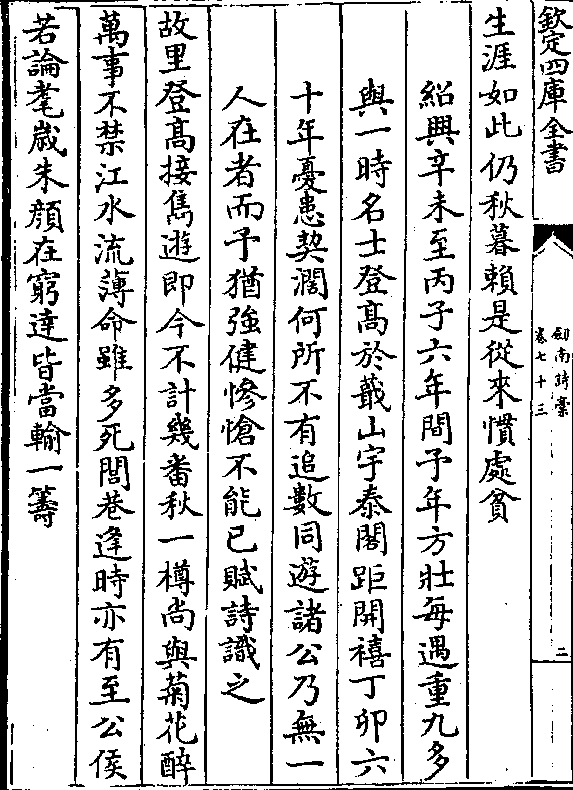 欽定四庫全書
劒南詩稾
卷七十三
二
生涯如此仍秋暮賴是從來慣處貧
紹興辛未至丙子六年間予年方壯每遇重九多
與一時名士登髙於蕺山宇泰閣距開禧丁卯六
十年憂患契濶何所不有追數同遊諸公乃無一
人在者而予猶強健慘愴不能已賦詩識之
故里登髙接雋遊即今不計幾番秋一樽尚與菊花醉
萬事不禁江水流薄命雖多死閭巷逢時亦有至公侯
若論耄嵗朱顔在窮達皆當輸一籌